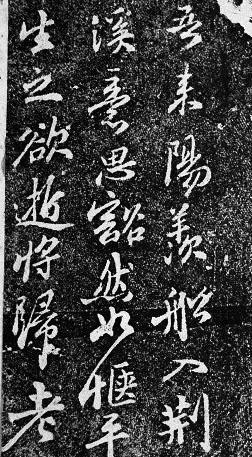 吾来陽羨船入荆
溪意思豁然如愜平
生之欲逝将歸老